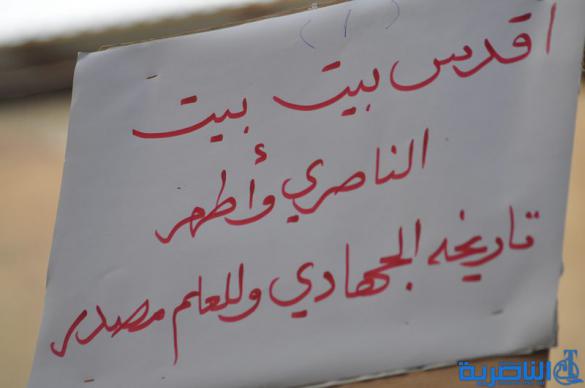 (١)
اقدس بيت بيت
الناصري وأطهر
تاريخه الجهادي وللعلم مصدر
الناصرية